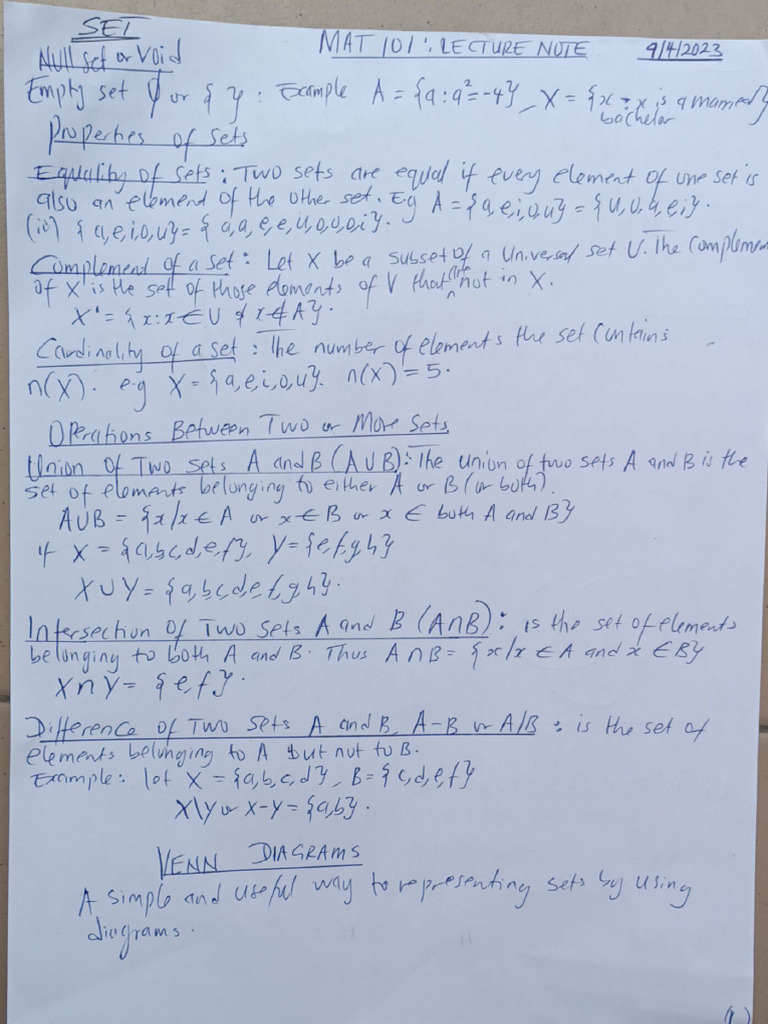 SET
MAT 101: LECTURE NOTE 9/4/2023
Null set or Void
Empty set ∅ or { } : Example A = {a : a² = -4}, X = {x : x is a married
bachelor}
Properties of Sets
Equality of Sets : Two sets are equal if every element of one set is
also an element of the other set. Eg A = {a,e,i,o,u} = {u,o,a,e,i}.
(ii) {a,e,i,o,u} = {a,a,e,e,u,o,o,o,i}.
Complement of a set : Let X be a subset of a Universal set U. The Complemen
of X' is the set of those elements of V that are not in X.
X' = {x : x ∈ U & x ∉ A}.
Cardinality of a set : The number of elements the set contains
n(X). e.g X = {a,e,i,o,u}. n(X) = 5.
Operations Between Two or More Sets
Union of Two Sets A and B (A∪B) : The union of two sets A and B is the
set of elements belonging to either A or B (or both).
A∪B = {x/x ∈ A or x ∈ B or x ∈ both A and B}
if X = {a,b,c,d,e,f}, Y = {e,f,g,h}
X∪Y = {a,b,c,d,e,f,g,h}.
Intersection of Two Sets A and B (A∩B) : is the set of elements
belonging to both A and B. Thus A∩B = {x/x ∈ A and x ∈ B}
X∩Y = {e,f}.
Difference of Two Sets A and B, A-B or A/B : is the set of
elements belonging to A but not to B.
Example : let X = {a,b,c,d}, B = {c,d,e,f}
X\Y or X-Y = {a,b}.
VENN DIAGRAMS
A simple and useful way to representing sets by using
diagrams.